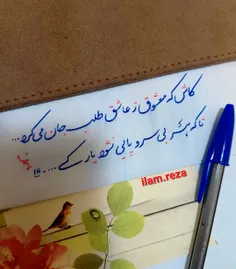 کاش که معشوق ز عاشق طلب جان می‌کرد...
تا که هر بی سر و پایی نشود یار کسی....!!!
ilam.reza